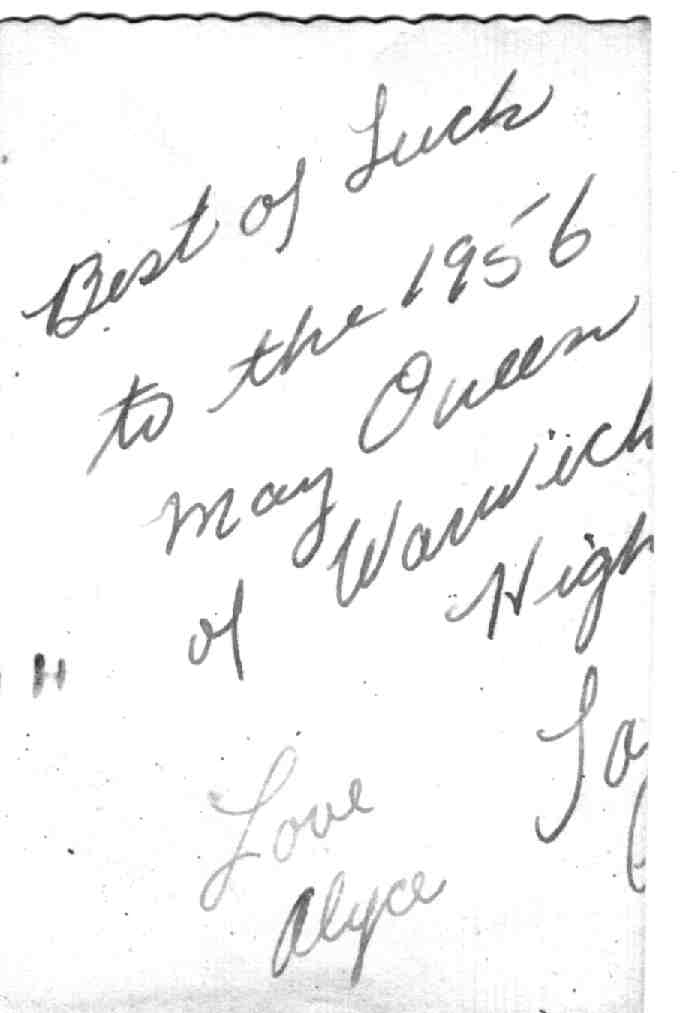 Best of Luck
to the 1956
May Queen
of Warwick
High
Love
Alyce
H